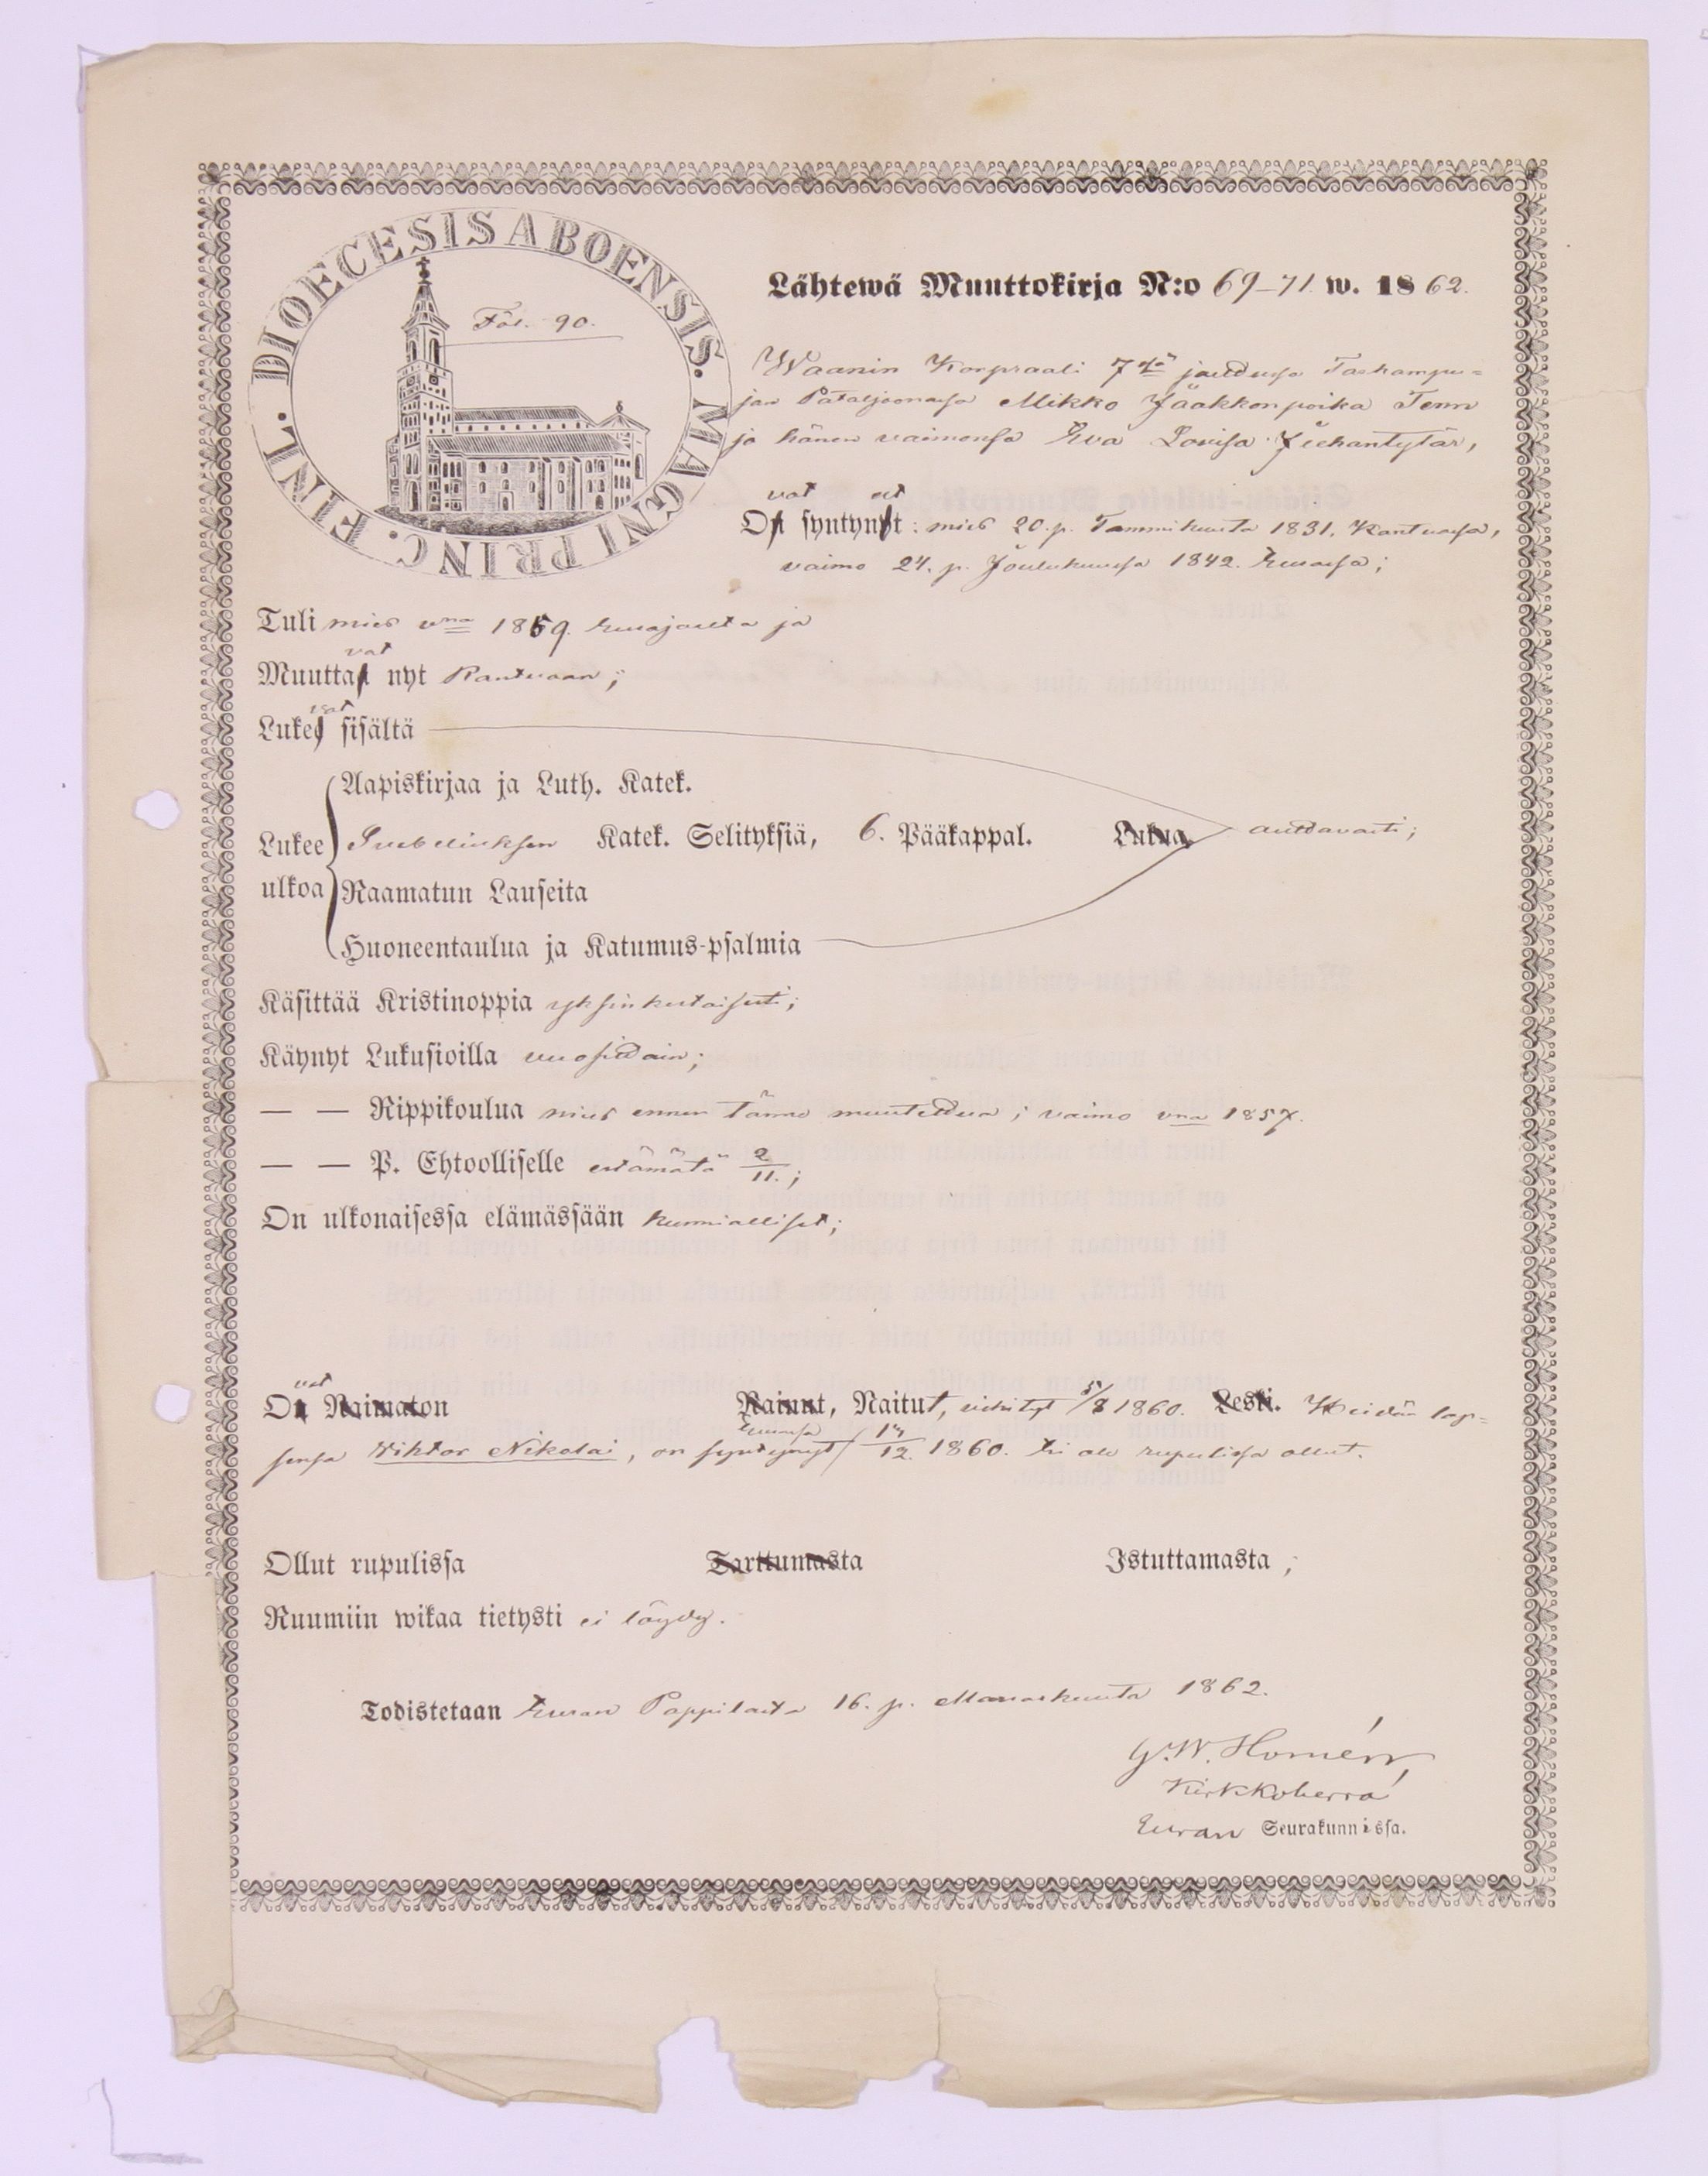 DIOECESIS ABOENSIS. MAGNI PRINC. FINL.
Fol. 90.
Lähtewä Muuttokirja N:o 69-71 w. 1862.
Waanin Korpraali 7dä jaudussa Tarkampu=
jan Pataljoonassa Mikko Jaakkonpoika Tenn
ja hänen vaimonsa Eva Lovisa Juhantytär,
vat eet
On syntynyt: mies 20. p. Tammikuuta 1831.
vaimo 24. p. Joulukuussa 1842. Eurassa;
Tuli mies vna 1859. Eurajoelta ja
vat
Muuttaa nyt
vat
Lukee sisältä
Aapiskirjaa ja Luth. Katek.
Lukee Svebeliuksen Katek. Selityksiä, 6. Pääkappal. Lukua auttavasti;
ulkoa Raamatun Lauseita
Huoneentaulua ja Katumus-psalmia
Käsittää Kristinoppia yksinkertaisesti;
Käynyt Lukusioilla vuosittain;
— — Rippikoulua mies ennen tänne muutettua; vaimo vna 1857.
— — P. Ehtoolliselle estämätä 2/11.;
On ulkonaisessa elämässään kunnialliset;
vat
On Naimaton Nainut, Naitut, vihityt 5/8 1860. Leski. Heidän lap=
Eurassa
sensa Wihtor Nikolai, on syntynyt 14/12. 1860. Ei ole rupulissa ollut.
Ollut rupulissa Tarttumasta Istuttamasta;
Ruumiin wikaa tietysti ei löydy.
Todistetaan Euran Pappilasta 16. p. Marraskuuta 1862.
G. W. Homén,
Kirkkoherra
Euran Seurakunnissa.